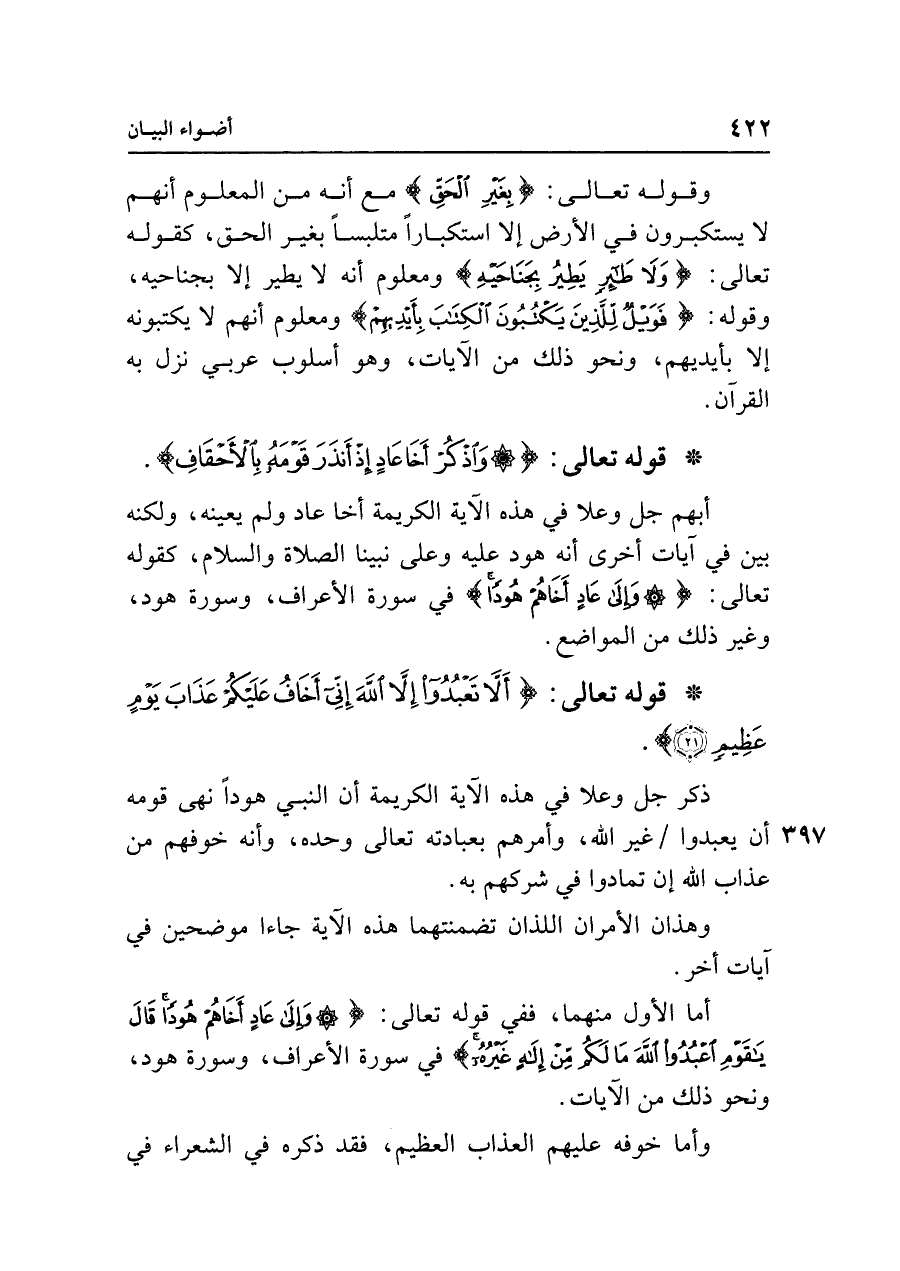 ٤٢٢ أضواء البيان
وقوله تعالى: ﴿بِغَيْرِ ٱلْحَقِّ﴾ مع أنه من المعلوم أنهم
لا يستكبرون في الأرض إلا استكباراً متلبساً بغير الحق، كقوله
تعالى: ﴿وَلَا طَٰٓئِرٖ يَطِيرُ بِجَنَاحَيْهِ﴾ ومعلوم أنه لا يطير إلا بجناحيه،
وقوله: ﴿فَوَيْلٌ لِّلَّذِينَ يَكْتُبُونَ ٱلْكِتَٰبَ بِأَيْدِيهِمْ﴾ ومعلوم أنهم لا يكتبونه
إلا بأيديهم، ونحو ذلك من الآيات، وهو أسلوب عربي نزل به
القرآن.
* قوله تعالى: ﴿۞ وَٱذْكُرْ أَخَا عَادٍ إِذْ أَنذَرَ قَوْمَهُۥ بِٱلْأَحْقَافِ﴾.
أبهم جل وعلا في هذه الآية الكريمة أخا عاد ولم يعينه، ولكنه
بين في آيات أخرى أنه هود عليه وعلى نبينا الصلاة والسلام، كقوله
تعالى: ﴿۞ وَإِلَىٰ عَادٍ أَخَاهُمْ هُودًاۚ﴾ في سورة الأعراف، وسورة هود،
وغير ذلك من المواضع.
* قوله تعالى: ﴿أَلَّا تَعْبُدُوٓا۟ إِلَّا ٱللَّهَ إِنِّىٓ أَخَافُ عَلَيْكُمْ عَذَابَ يَوْمٍ
عَظِيمٖ ٢١﴾.
ذكر جل وعلا في هذه الآية الكريمة أن النبي هوداً نهى قومه
٣٩٧ أن يعبدوا / غير الله، وأمرهم بعبادته تعالى وحده، وأنه خوفهم من
عذاب الله إن تمادوا في شركهم به.
وهذان الأمران اللذان تضمنتهما هذه الآية جاءا موضحين في
آيات أخر.
أما الأول منهما، ففي قوله تعالى: ﴿۞ وَإِلَىٰ عَادٍ أَخَاهُمْ هُودًاۚ قَالَ
يَٰقَوْمِ ٱعْبُدُوا۟ ٱللَّهَ مَا لَكُم مِّنْ إِلَٰهٍ غَيْرُهُۥٓۚ﴾ في سورة الأعراف، وسورة هود،
ونحو ذلك من الآيات.
وأما خوفه عليهم العذاب العظيم، فقد ذكره في الشعراء في